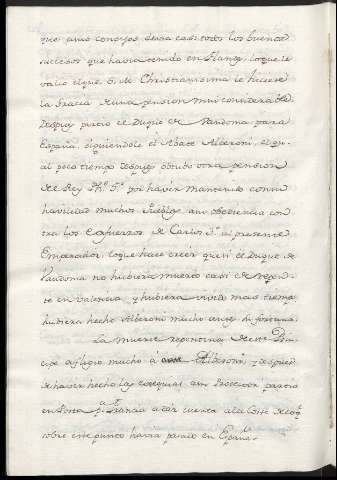 que a sus consejos devia casi todos los buenos
sucesos que havia tenido en Flandes, lo que le
valio el que S. M. Christianissima le hiciese
la gracia de una pension mui considerable.
Despues partio el Duque de Vandoma para
España, siguiendole el Abate Alberoni, el qual
al poco tiempo despues obtubo otra pension
del Rey Phe. 5º por haver mantenido con su
havilidad muchos Pueblos a su obediencia con
tra los Esfuerzos de Carlos 3º al presente
Emperador, lo que hace creer que si el Duque de
Vandoma no hubiera muerto casi de repen
te en Valencia, y hubiera vivido mas tiempo
hubiera hecho Alberoni mucho antes su fortuna.
La muerte repentina de este Prin
cipe afligio mucho á Alberoni, y despues
de haver hecho las exequias a su Protector partio
en Posta pa. Francia a dar cuenta a la Corte de lo qe.
sobre este punto havia pasado en España.